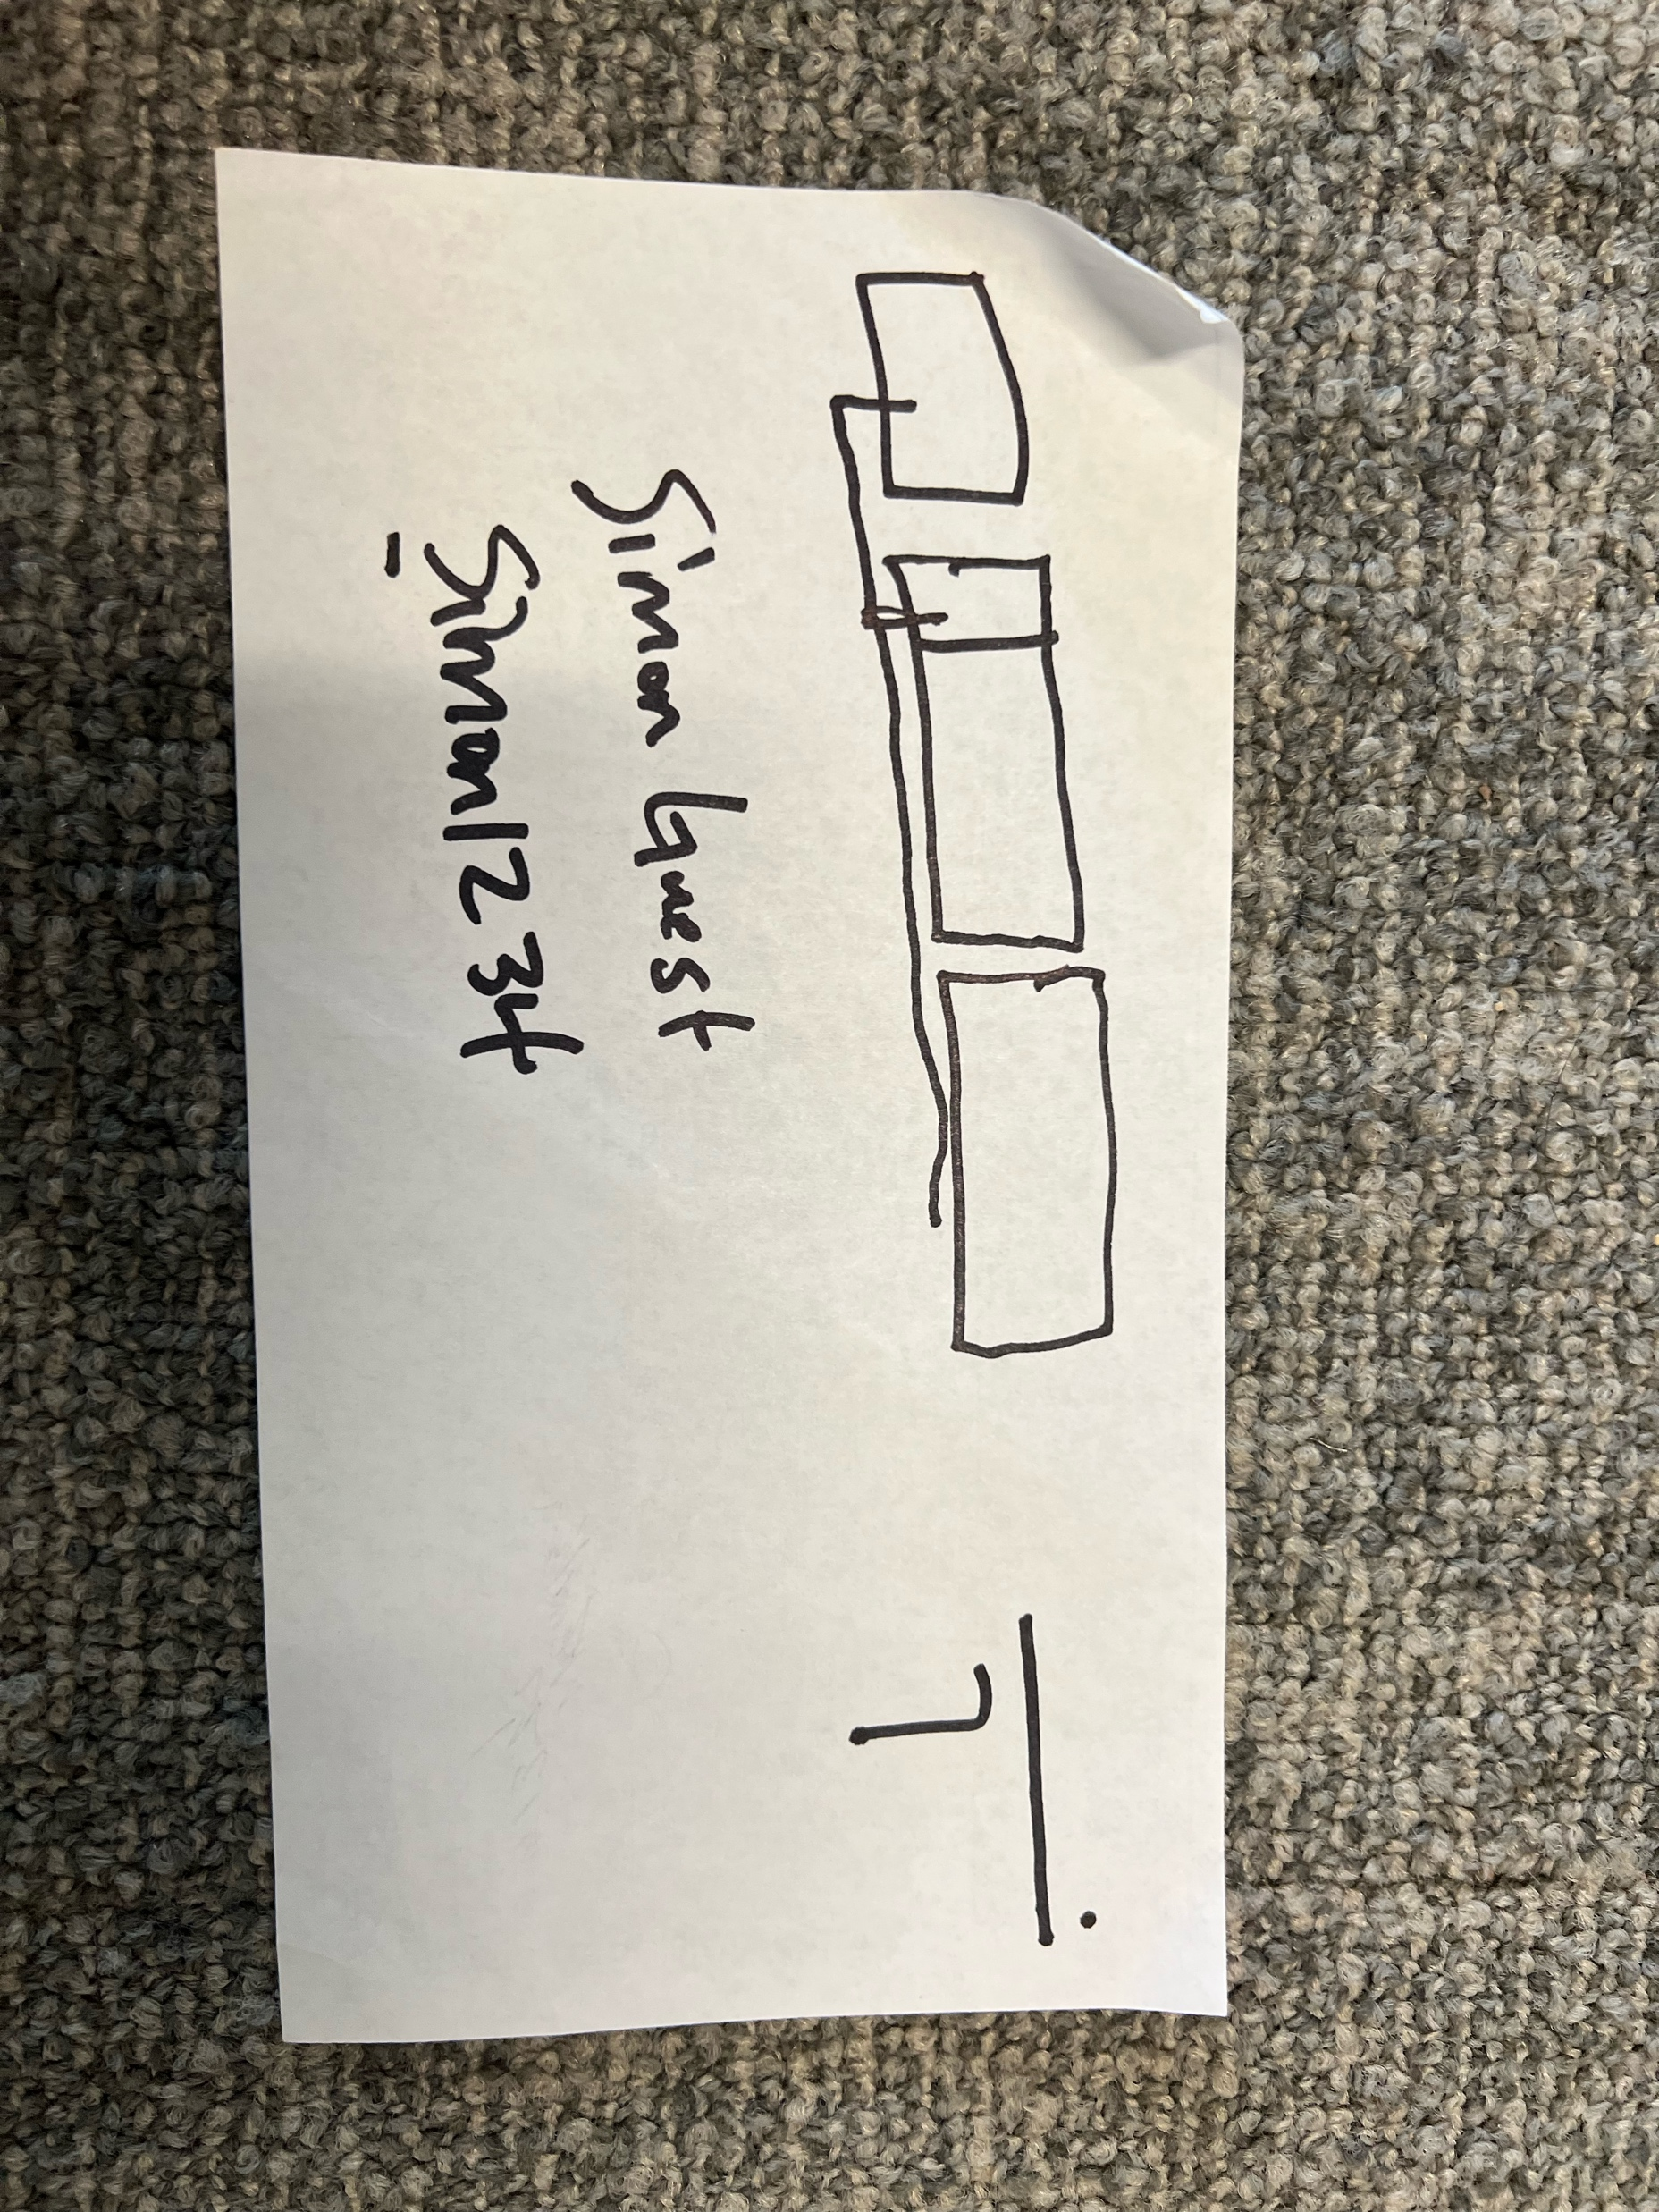 Simon Guest
Simon1234